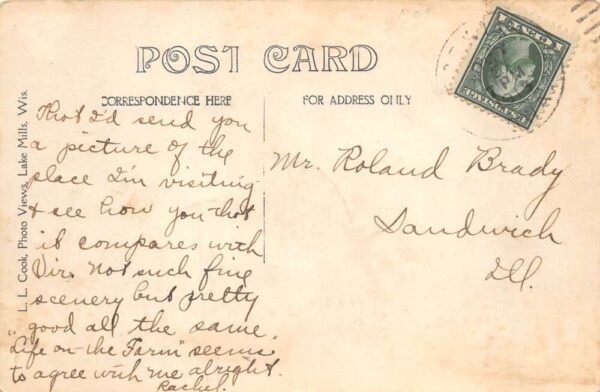 POST CARD
CORRESPONDENCE HERE
FOR ADDRESS ONLY
L. L. Cook, Photo Views, Lake Mills, Wis.
Thot I'd send you
a picture of the
place I'm visiting
& see how you thot
it compares with
Vir. Not such fine
scenery but pretty
good all the same.
"Life on the Farm" seems
to agree with me alright.
Rachel.
Mr. Roland Brady
Sandwich
Ill.